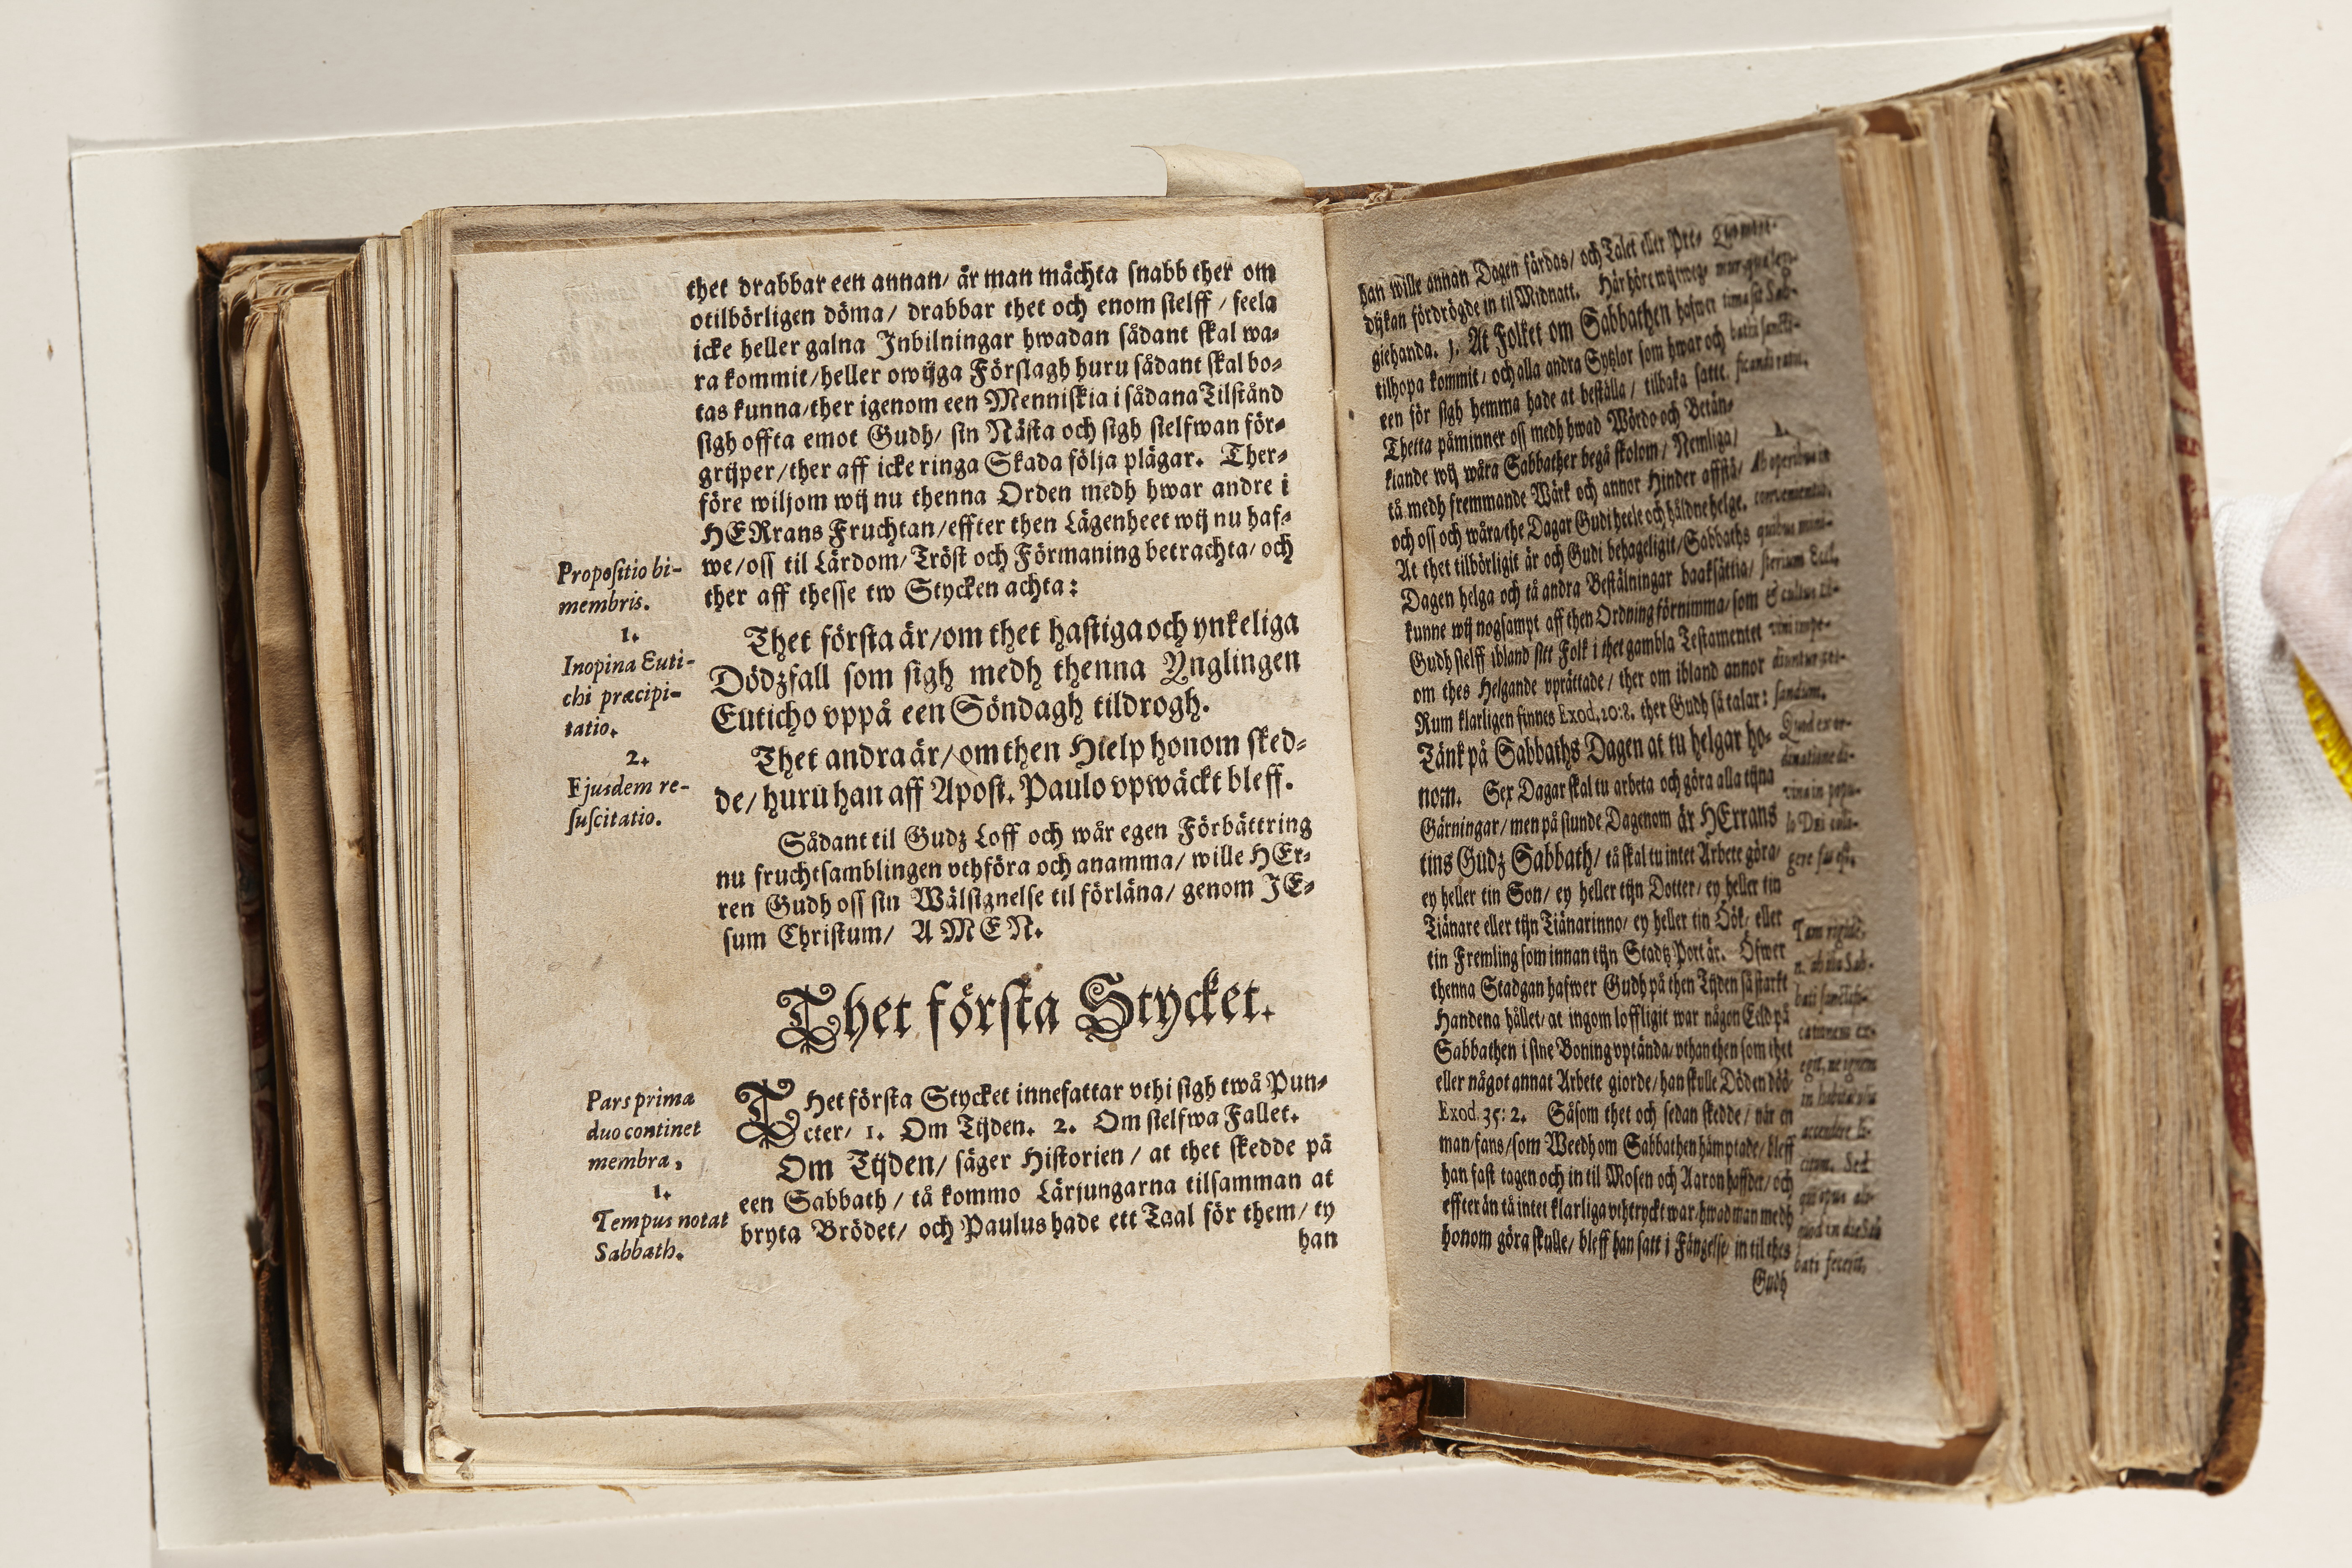 thet drabbar een annan/ är man mächta snabb ther om
otilbörligen döma/ drabbar thet och enom sielff / feela
icke heller galna Inbilningar hwadan sådant skal wa-
ra kommit/heller owijga Förslagh huru sådant skal bo-
tas kunna/ther igenom een Menniskia i sådana Tilstånd
sigh offta emot Gudh/ sin Nästa och sigh sielfwan för-
grijper/ther aff icke ringa Skada följa plägar. Ther-
före wiljom wij nu thenna Orden medh hwar andre i
HERrans Fruchtan/effter then Lägenheet wij nu haf-
we/oss til Lärdom/ Tröst och Förmaning betrachta/ och
ther aff thesse tw Stycken achta:
Propositio bi-
membris.
1.
Inopina Euti-
chi præcipi-
tatio.
2.
Ejusdem re-
suscitatio.
Thet första är/om thet hastiga och ynkeliga
Dödzfall som sigh medh thenna Ynglingen
Euticho vppå een Söndagh tildrogh.
Thet andra är/om then Hielp honom sked-
de/huru han aff Apost. Paulo vpwäckt bleff.
Sådant til Gudz Loff och wår egen Förbättring
nu fruchtsamblingen vthföra och anamma/ wille HEr-
ren Gudh oss sin Wälsignelse til förläna/ genom JE-
sum Christum/ AMEN.
Thet första Stycket.
THet första Stycket innefattar vthi sigh twå Pun-
cter/ 1. Om Tijden. 2. Om sielfwa Fallet.
Om Tijden/ säger Historien / at thet skedde på
een Sabbath / tå kommo Lärjungarna tilsamman at
bryta Brödet/ och Paulus hade ett Taal för them/ ty
han
Pars prima
duo continet
membra.
1.
Tempus notat
Sabbath.
han wille annan Dagen färdas/ och Talet eller Pre-
dijkan fördrögde in til Midnatt. Här höre wij
giehanda. 1. At Folket om Sabbathen hafwer
tilhopa kommit/ och alla andra Syßlor som hwar och
een för sigh hemma hade at beställa/ tilbaka satt.
Thetta påminner oss medh hwad Wördo och Betän-
kiande wij wåra Sabbather begå skolom/ Nemliga/
tå medh fremmande Wärk och annor Hinder affstå/
och oss och wåra/the Dagar Gudi heele och håldne helge.
At thet tilbörligit är och Gudi behageligit/Sabbaths
Dagen helga och tå andra Beställningar baaksättia/
kunne wij nogsampt aff then Ordning förnimma/som
Gudh sielff ibland sitt Folk i thet gambla Testamentet
om thes Helgande vprättade/ ther om ibland annor
Rum klarligen finnes Exod. 20:8. ther Gudh så talar:
Tänk på Sabbaths Dagen at tu helgar ho-
nom. Sex Dagar skal tu arbeta och göra alla tijna
Gärningar/men på siunde Dagenom är HErrans
tins Gudz Sabbath/ tå skal tu intet Arbete göra/
ey heller tin Son/ ey heller tijn Dotter/ ey heller tin
Tiänare eller tijn Tiänarinno/ ey heller tin Öök/ eller
tin Fremling som innan tijn Stadtz Port är. Öfwer
thenna Stadgan hafwer Gudh på then Tijden så starkt
Handena hållet/ at ingom loffligit war någon Eeld på
Sabbathen i sine Boning vptända/vthan then som thet
eller något annat Arbete giorde/ han skulle Döden döö/
Exod. 35: 2. Såsom thet och sedan skedde/ når en
man/fans/som Weedh om Sabbathen hämptade/ bleff
han fast tagen och in til Mosen och Aaron haffder/ och
effter än tå intet klarliga vthtryckt war/hwad man medh
honom göra skulle/ bleff han satt i Fängelse/ in til thes
Gudh
ficandi ratio.
1.
Ab operibus in
convenientiæ,
quibus mini-
sterium Eccl.
sandum.
Quod ex or-
dinatione di-
vina in popu-
lo Dei
gere fas est.
Tam rigide
bati
in
citum. Sed
bati fecerit.